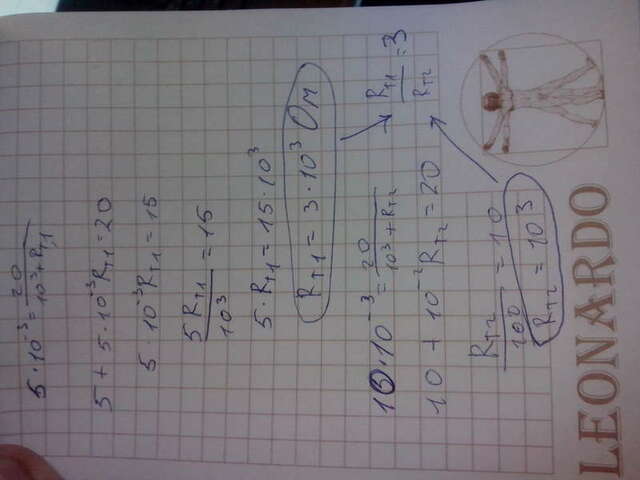 5·10⁻³ = 20/(10³ + R_T1)
5 + 5·10⁻³R_T1 = 20
5·10⁻³R_T1 = 15
5R_T1/10³ = 15
5·R_T1 = 15·10³
R_T1 = 3·10³ Ом
10·10⁻³ = 20/(10³ + R_T2)
R_T1/R_T2 = 3
10 + 10⁻²R_T2 = 20
R_T2/100 = 10
R_T2 = 10³
LEONARDO